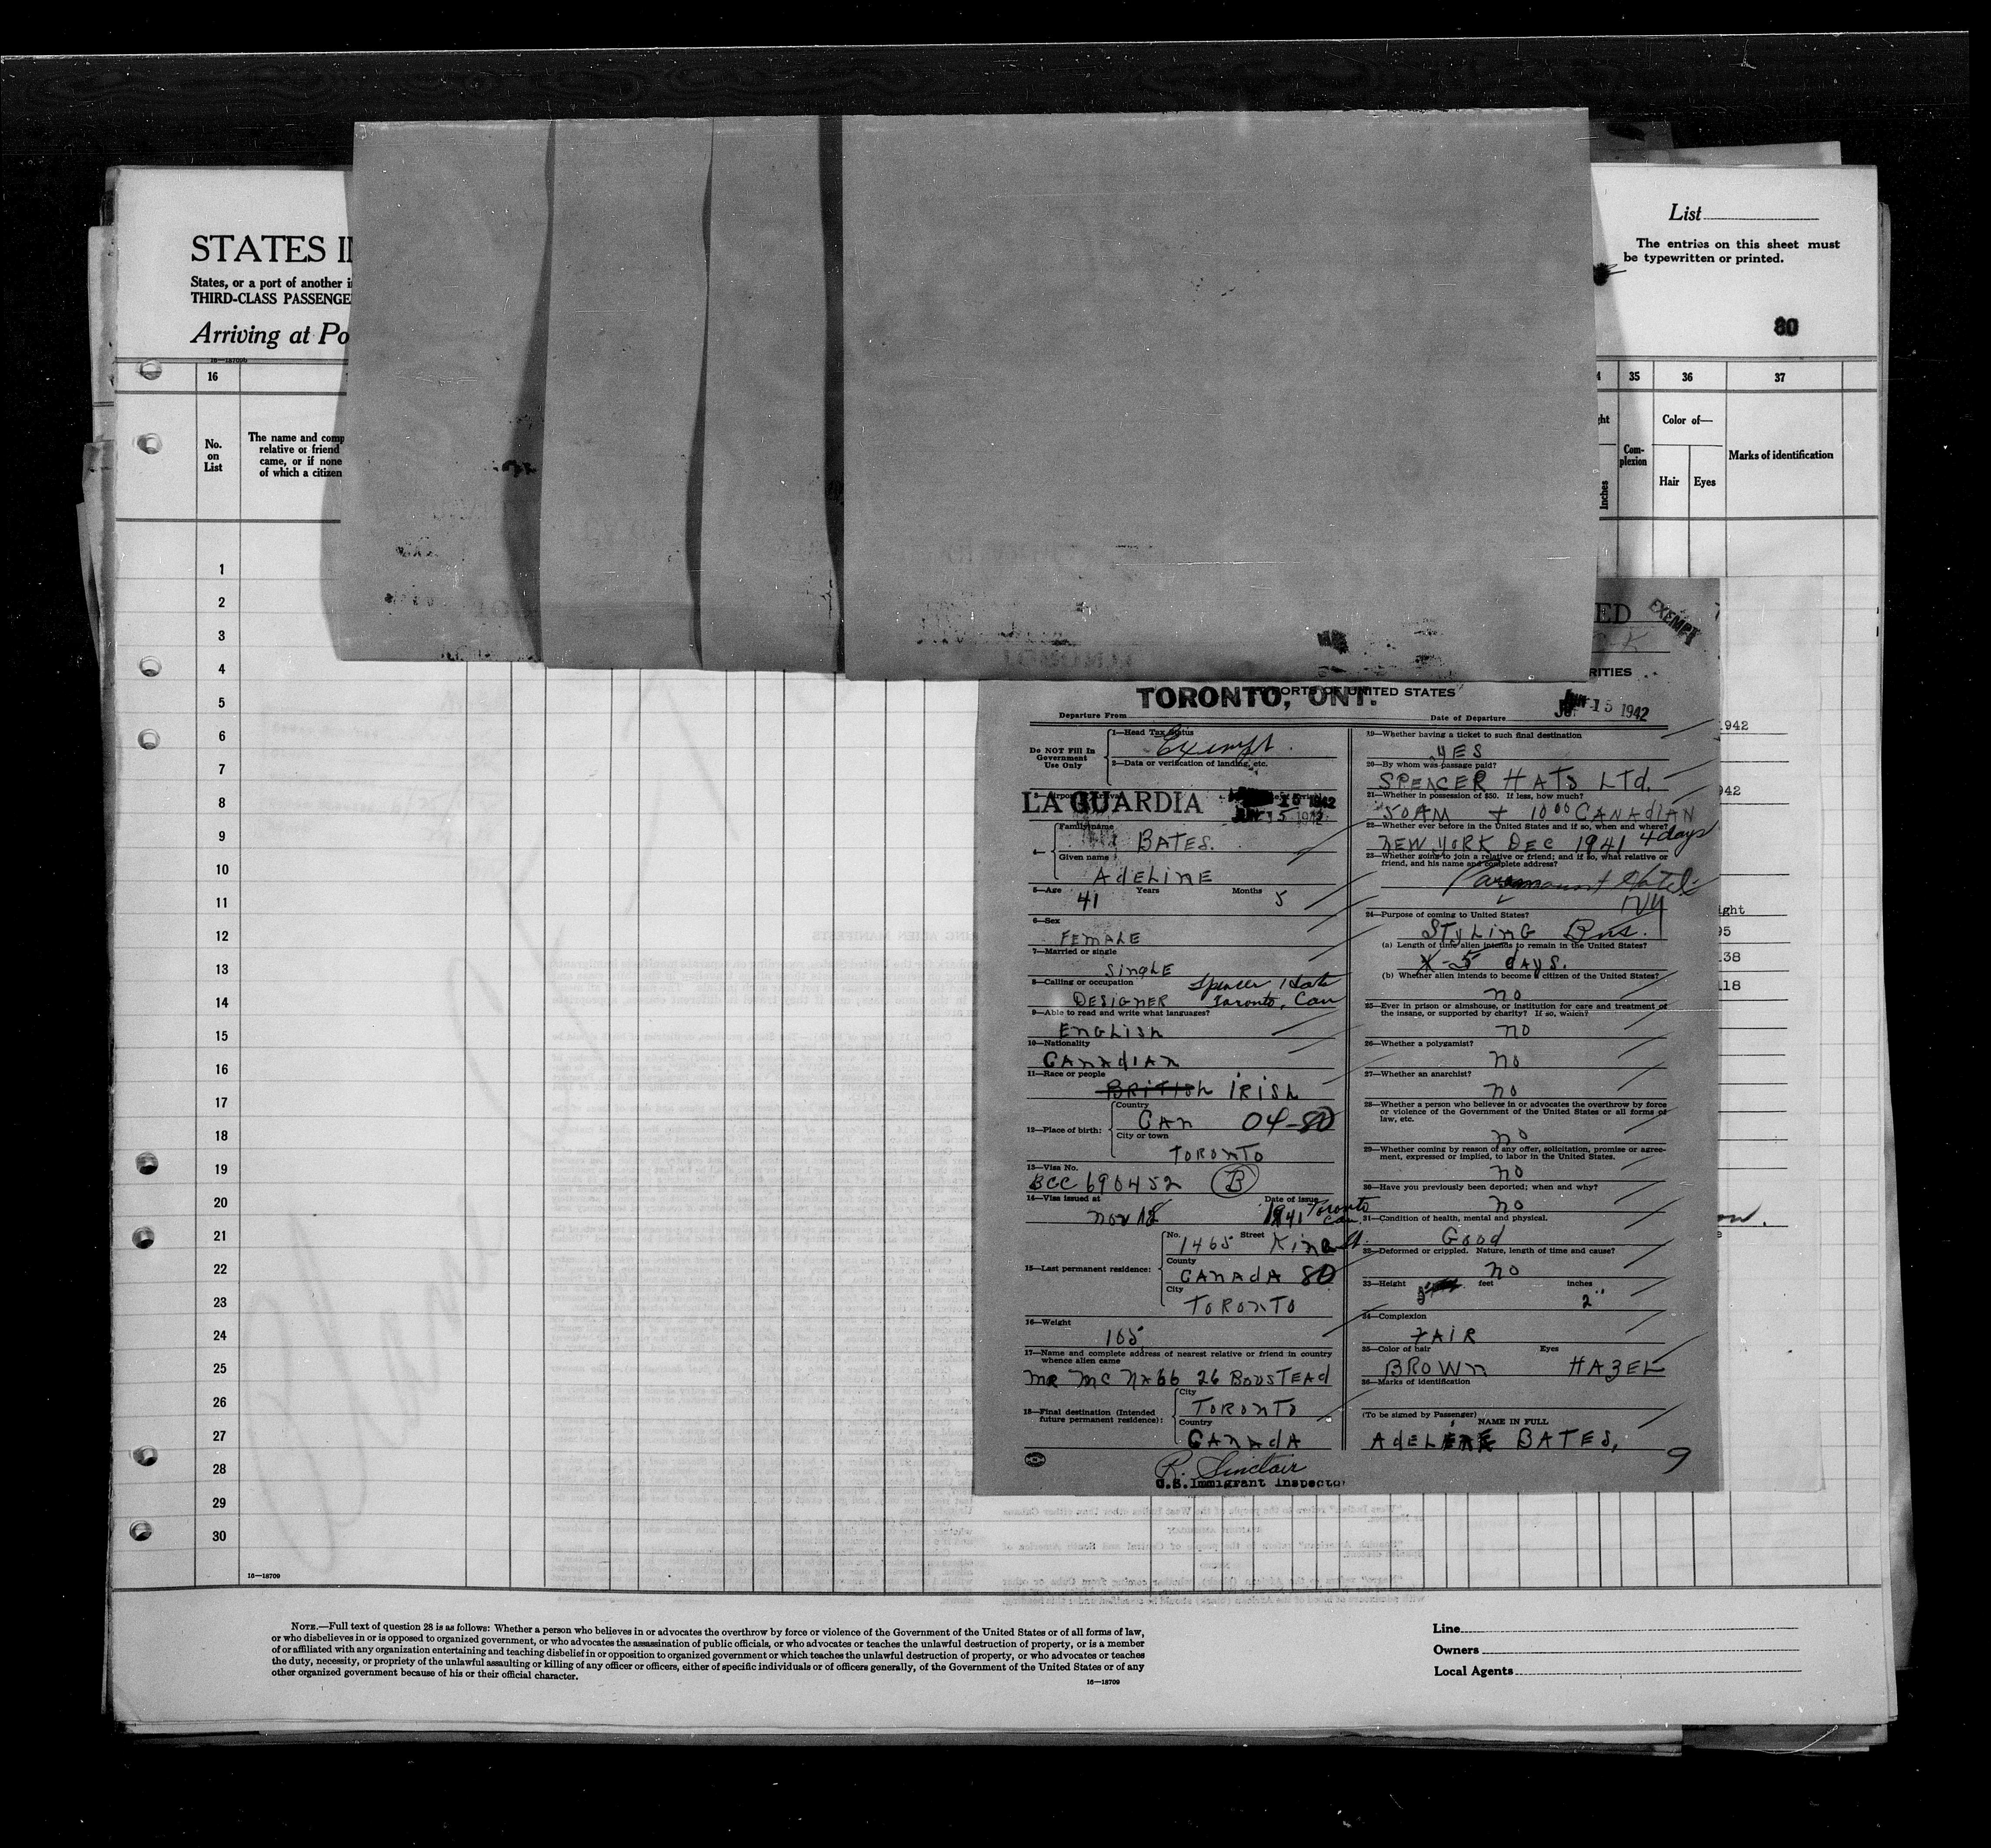 STATES IN
States, or a port of another i
THIRD-CLASS PASSENGE
Arriving at Po
List
The entries on this sheet must
be typewritten or printed.
80
16—18709b
16
35
36
37
No.
on
List
The name and comp
relative or friend
came, or if none
of which a citizen
Inches
Com-
plexion
Color of—
Hair
Eyes
Marks of identification
1
2
3
4
5
6
7
8
9
10
11
12
13
14
15
16
17
18
19
20
21
22
23
24
25
26
27
28
29
30
16—18709
ED
EXEMPT
RITIES
PORTS OF UNITED STATES
TORONTO, ONT.
Departure From
Date of Departure
JUN 15 1942
Do NOT Fill In
Government
Use Only
1—Head Tax Status
Exempt.
2—Data or verification of landing, etc.
LA GUARDIA
15 1942
JUN 15 1942
4—
Family name
BATES.
Given name
AdELINE
5—Age
41 Years Months 5
6—Sex
FEMALE
7—Married or single
SingLE
8—Calling or occupation
Spencer Hats
DESIGNER Toronto, Can
9—Able to read and write what languages?
ENGLISh
10—Nationality
CANAdIAN
11—Race or people
BRITISh IRISh
12—Place of birth:
Country
CAN 04-80
City or town
TORONTO
13—Visa No.
BCC 690452 B
14—Visa issued at
Date of issue
Nov 18 1941 Toronto
Can
15—Last permanent residence:
No. 1465 Street King St.
County
CANAdA 80
City
TORONTO
16—Weight
105
17—Name and complete address of nearest relative or friend in country
whence alien came
MR MC NABB 26 BOUSTEAd
18—Final destination (Intended
future permanent residence):
City
TORONTO
Country
CANAdA
R. Sinclair
U.S. Immigrant Inspector
19—Whether having a ticket to such final destination
YES
20—By whom was passage paid?
SPENCER HATS LTd.
21—Whether in possession of $50. If less, how much?
50 AM + 10 00 CANAdIAN
22—Whether ever before in the United States and if so, when and where?
NEW YORK DEC 1941 4 days
23—Whether going to join a relative or friend; and if so, what relative or
friend, and his name and complete address?
Paramount Hotel
NY
24—Purpose of coming to United States?
STYLING Bus.
(a) Length of time alien intends to remain in the United States?
5 dAYS.
(b) Whether alien intends to become a citizen of the United States?
NO
25—Ever in prison or almshouse, or institution for care and treatment of
the insane, or supported by charity? If so, which?
NO
26—Whether a polygamist?
NO
27—Whether an anarchist?
NO
28—Whether a person who believes in or advocates the overthrow by force
or violence of the Government of the United States or all forms of
law, etc.
NO
29—Whether coming by reason of any offer, solicitation, promise or agree-
ment, expressed or implied, to labor in the United States.
NO
30—Have you previously been deported; when and why?
NO
31—Condition of health, mental and physical.
Good
32—Deformed or crippled. Nature, length of time and cause?
NO
33—Height feet inches
5 2"
34—Complexion
FAIR
35—Color of hair Eyes
BROWN HAZEL
36—Marks of identification
(To be signed by Passenger)
NAME IN FULL
AdELINE BATES,
9
942
942
ight
95
38
118
Note.—Full text of question 28 is as follows: Whether a person who believes in or advocates the overthrow by force or violence of the Government of the United States or of all forms of law,
or who disbelieves in or is opposed to organized government, or who advocates the assassination of public officials, or who advocates or teaches the unlawful destruction of property, or is a member
of or affiliated with any organization entertaining and teaching disbelief in or opposition to organized government or which teaches the unlawful destruction of property, or who advocates or teaches
the duty, necessity, or propriety of the unlawful assaulting or killing of any officer or officers, either of specific individuals or of officers generally, of the Government of the United States or of any
other organized government because of his or their official character.
16—18709
Line
Owners
Local Agents